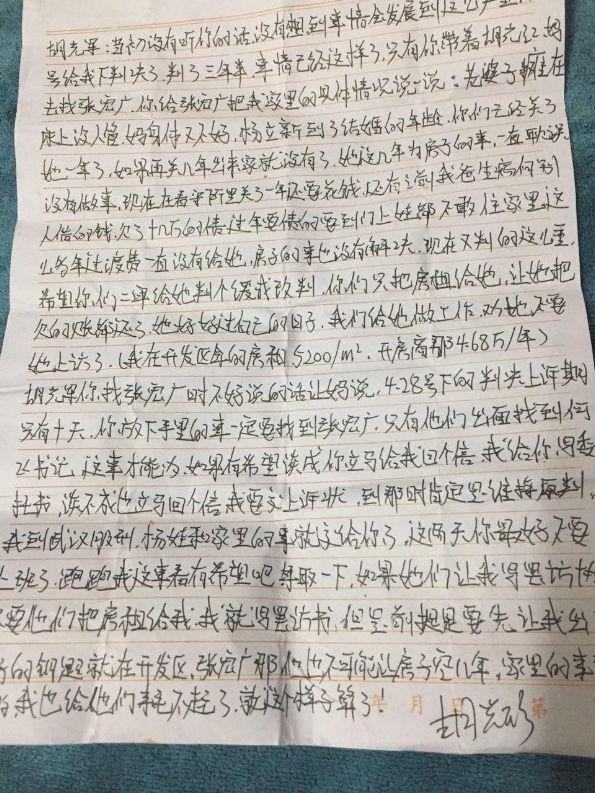 胡光军:当初没有听你的话没有想到事情会发展到这么严重
号给我下判决了.判了三年半 事情已经这样了.只有你带着胡光江
去找张宏广.你给张宏广把我家里的具体情况说一说:老婆子瘫在
床上没人管.妈身体又不好,杨立新到了结婚的年龄.你们已经关了
她一年了,如果再关几年出来家就没有了.她这几年为房子的事,一直耽误
没有做事.现在在看守所里关了一年还要花钱.还有之前我爸生病向别
人借的钱,欠了十几万的债过年要债的要到门上娃都不敢住家里.这
么多年过渡费一直没有给她,房子的事也没有解决.现在又判的这么重.
希望你们二审给她判个缓我改判.你们只把房租给她,让她把
欠的账都还了.她好好过自己的日子.我们给她做工作.劝她不要
她上访了.(我在开发区的房租5200/m².开房商那4.68万/年)
胡光军你找张宏广时不好说的话让妈说.4.28号下的判决上诉期
只有十天.你放下手里的事一定要找到张宏广.只有他们出面找到何
书记 这事才能办.如果有希望谈成你立马给我回个信.我给你写委
托书,谈不成也立马回个信.我要交上诉状,到那时肯定是维持原判.
我到武汉服刑.杨娃和家里的事就交给你了.这两天你最好不要
上班了.跑跑我这事看有希望吧 争取一下.如果她们让我写罢访书
要他们把房租给我.我就写罢访书.但是前提是要先让我出
的钥匙就在开发区.张宏广那 他也不可能让房子空几年,家里的事
我也给他们耗不起了.就这个样子算了!
年 月 日 第
胡光珍